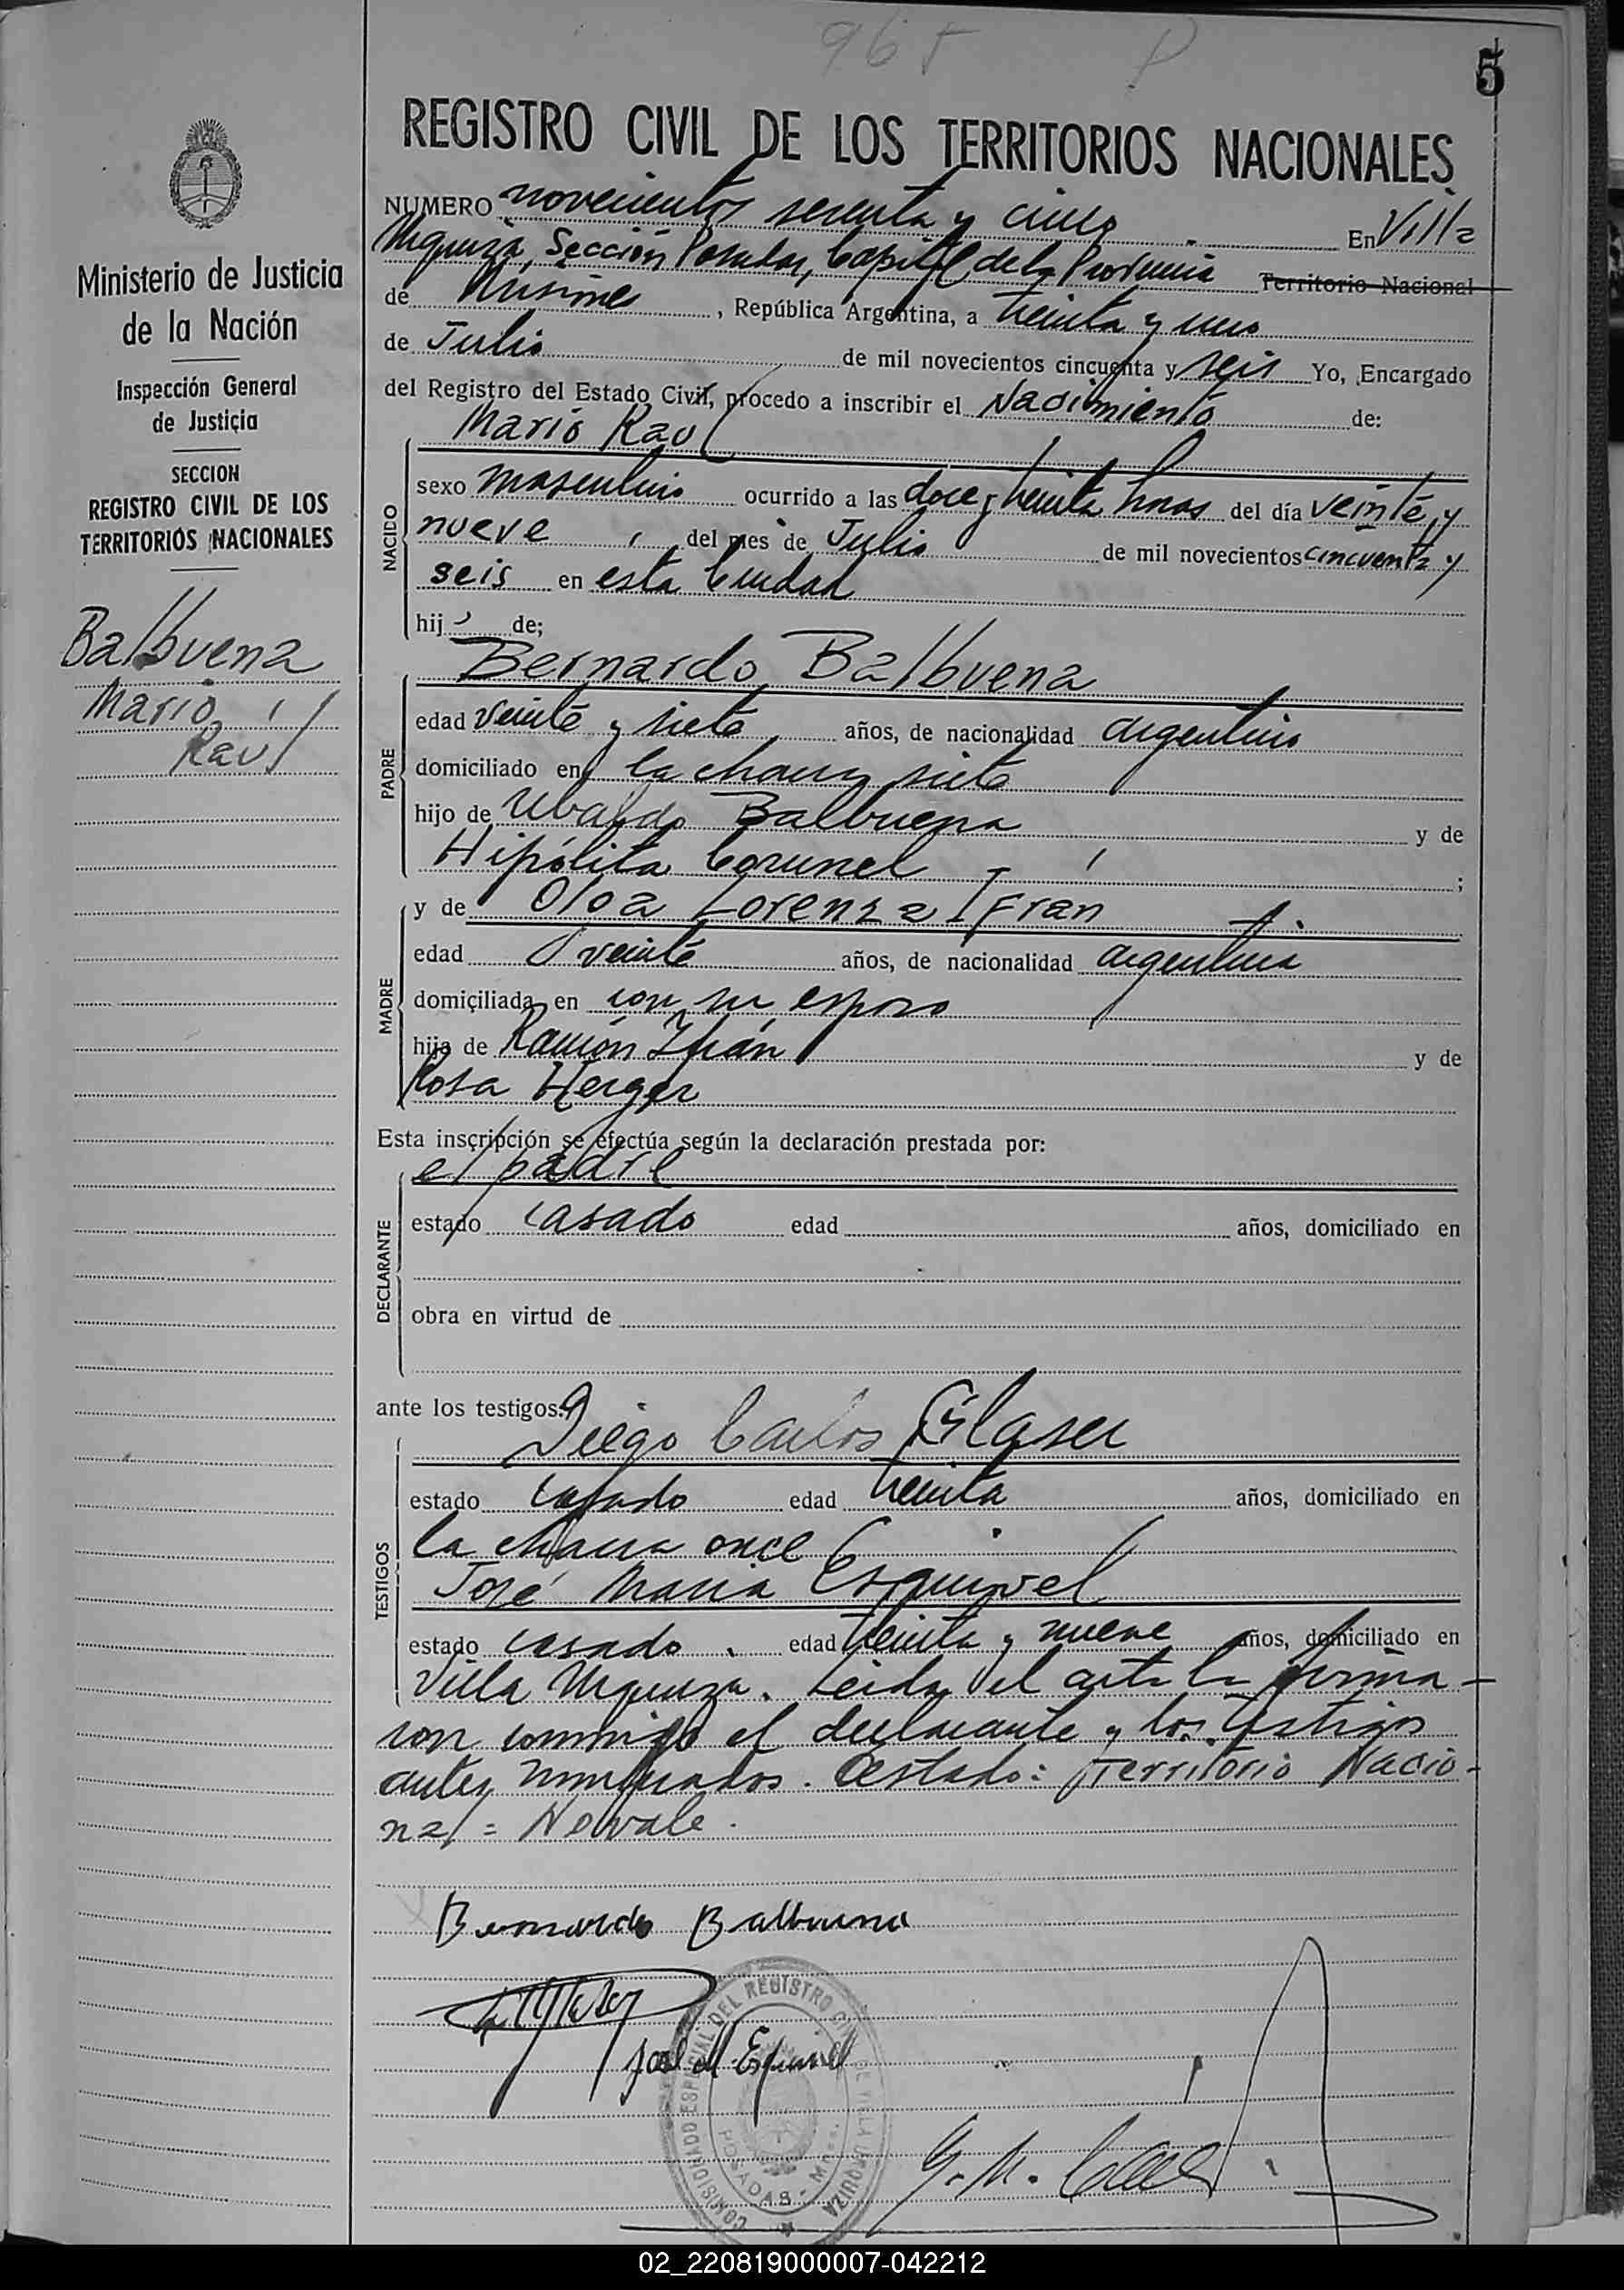 965 P
5
REGISTRO CIVIL DE LOS TERRITORIOS NACIONALES
NUMERO novecientos sesenta y cinco En Villa
Urquiza, Sección Posadas, Capital de la Provincia Territorio Nacional
de Misiones, República Argentina, a treinta y uno
de Julio de mil novecientos cincuenta y seis Yo, Encargado
del Registro del Estado Civil, procedo a inscribir el Nacimiento de:
Mario Raul
NACIDO
sexo masculino ocurrido a las doce y treinta horas del día veinte y
nueve del mes de Julio de mil novecientos cincuenta y
seis en esta Ciudad
hijo de;
Bernardo Balbuena
PADRE
edad veinte y siete años, de nacionalidad argentino
domiciliado en la chacra siete
hijo de Ubaldo Balbuena y de
Hipólita Coronel ;
MADRE
y de Olga Lorenza Ifran
edad veinte años, de nacionalidad argentina
domiciliada en con su esposo
hija de Ramón Ifrán y de
Rosa Herger
Esta inscripción se efectúa según la declaración prestada por:
el padre
DECLARANTE
estado casado edad años, domiciliado en
obra en virtud de
ante los testigos:
Diego Carlos Glaser
TESTIGOS
estado casado edad treinta años, domiciliado en
la chacra once
José Maria Esquivel
estado casado. edad treinta y nueve años, domiciliado en
Villa Urquiza. Leida el acta la firma-
ron conmigo el declarante y los testigos
antes nombrados. Testado: Territorio Nacio-
nal = No vale.
Bernardo Balbuena
José M Esquivel
COMISIONADO ESPECIAL DEL REGISTRO CIVIL DE VILLA URQUIZA
POSADAS - Mnes.
Ministerio de Justicia
de la Nación
Inspección General
de Justicia
SECCION
REGISTRO CIVIL DE LOS
TERRITORIOS NACIONALES
Balbuena
Mario
Raul
02_220819000007-042212